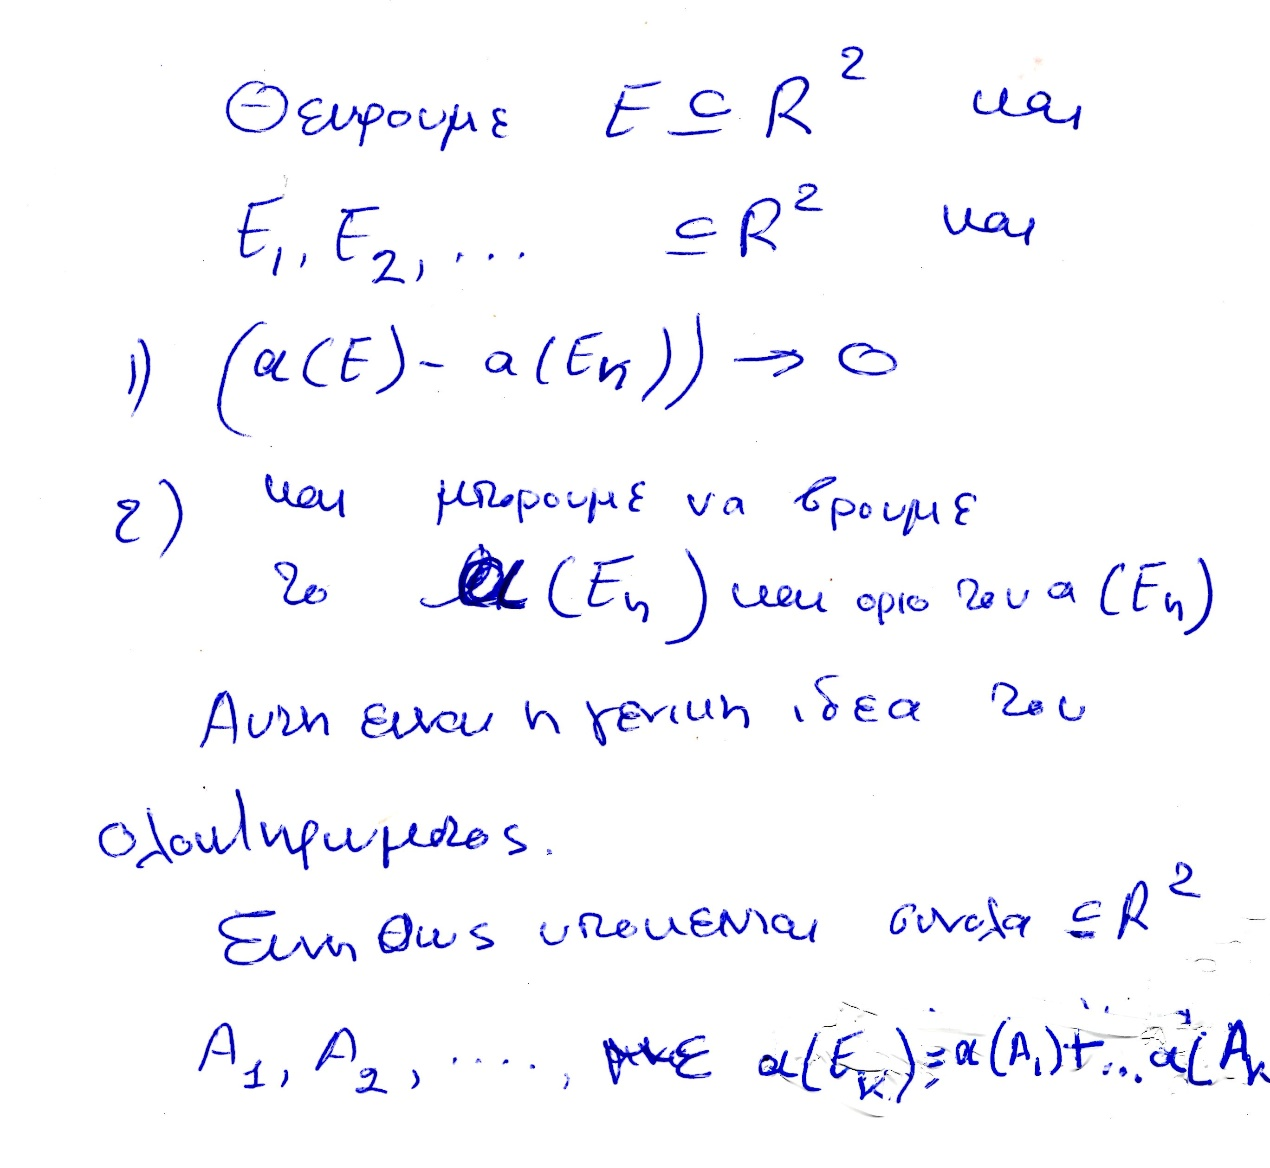 Θευρουμε E ⊆ R² και
E₁, E₂, ... ⊆ R² και
1) (α(E) - α(Eₙ)) → 0
2) και μπορουμε να βρουμε
το α(Eₙ) και οριο του α(Eₙ)
Αυτη ειναι η γενικη ιδεα του
ολοκληρωματος.
Συνηθως υποκενται συνολα ⊆ R²
A₁, A₂, ...., με α(Eₖ) = α(A₁)+...α(Aₖ